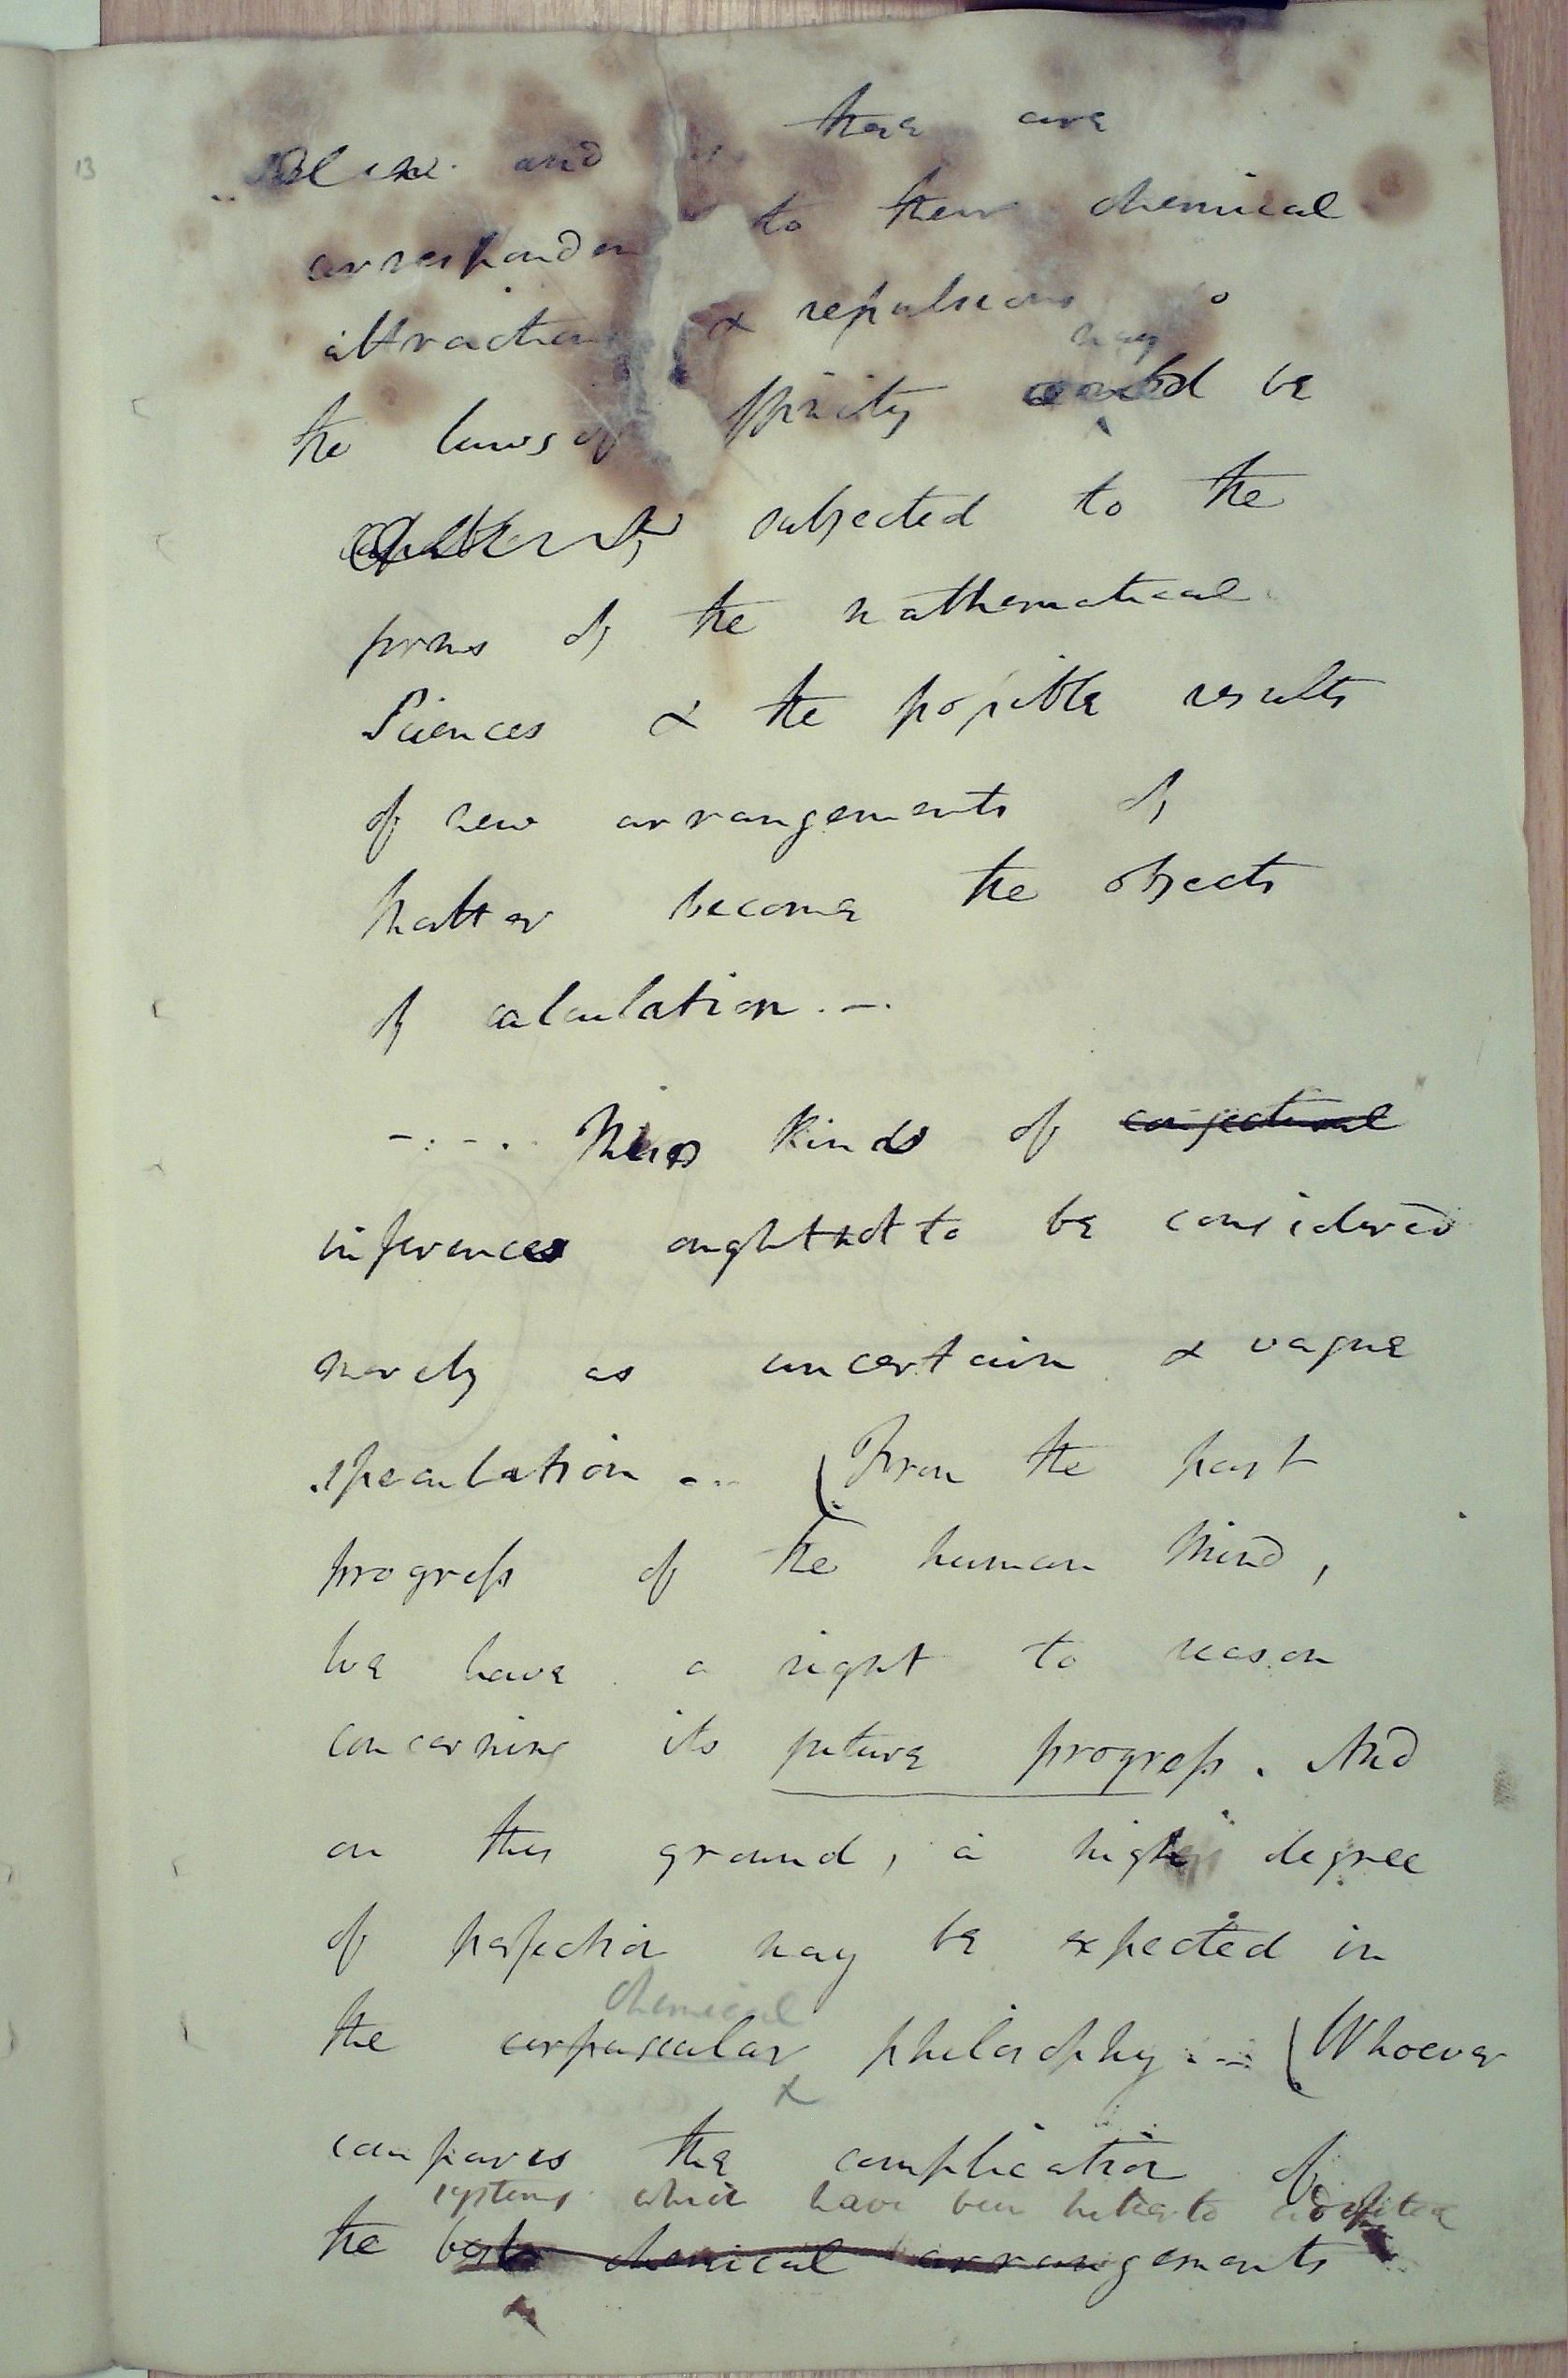 13
and there are
correspondem to their chemical
attractions & repulsions so
may
the laws of ffinity could be
subjected to the
forms of the mathematical
Sciences & the possible results
of new arrangements of
Matter become the objects
of calculation. —.
These kinds of conjectural
inferences ought not to be considered
merely as uncertain & vague
speculation - .. (From the past
progress of the human Mind,
We have a right to reason
concerning its future progress. And
on this ground, a high degree
of perfection may be expected in
chemical
the corpuscular philosophy . - (Whoever
x
compares the complication of
systems which have been hitherto adopted
the best chemical arrangements